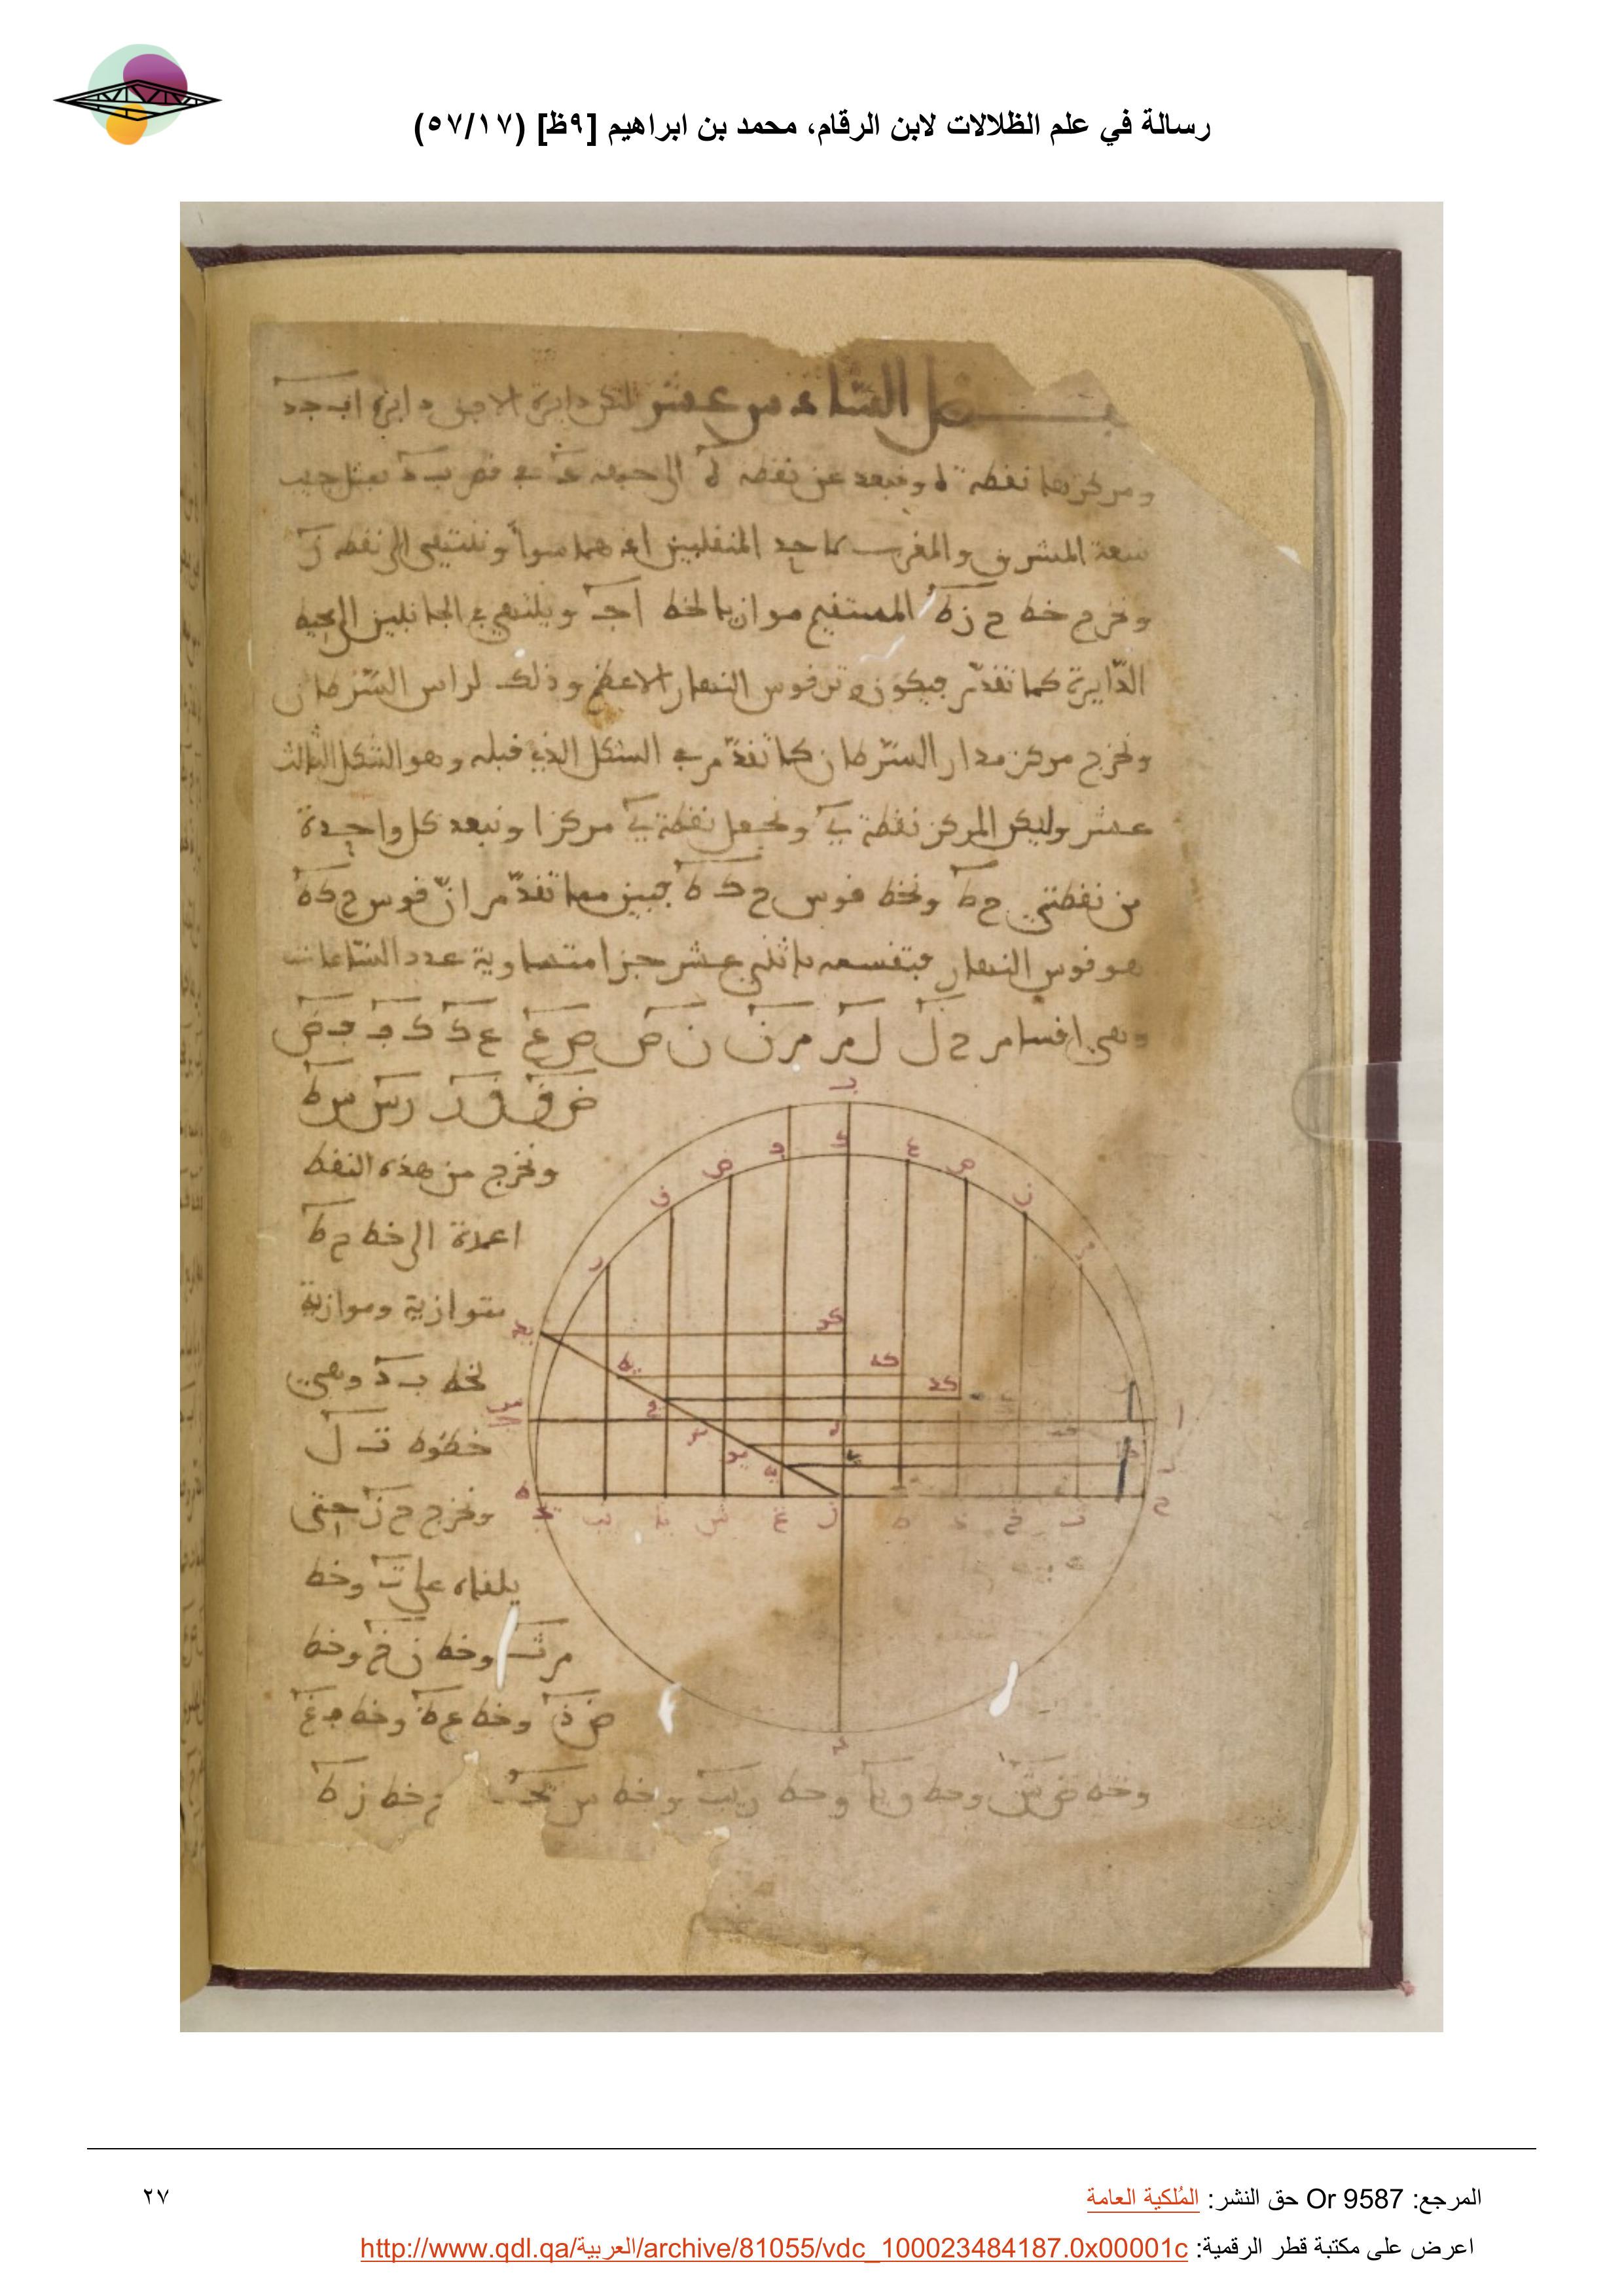 رسالة في علم الظلالات لابن الرقام، محمد بن ابراهيم [٩ظ] (٥٧/١٧)
الساد س عشر لتكن دايرة الافق دايرة ابـ جد
ومركزها نقطة ه ونبعد عن نقطة ه الى جهة في قطر بـ د بمثل جيب
سعة المشرق والمغرب لاحد المنقلبين اذ هما سوا وننتهي الى نقطة ز
ونخرج خط ح ز ط المستقيم موازيا لخط ا جـ وينتهي في الجانبين الى محيط
الدايرة كما تقدم فيكون وتر قوس النهار الاعظم وذلك لراس السرطان
ونخرج مركز مدار السرطان كما تقدم في الشكل الذي قبله وهو الشكل الثالث
عشر وليكن المركز نقطة ي ونجعل نقطة ي مركزا ونبعد كل واحدة
من نقطتي ح ط ونخط قوس ح ك ط فبين مما تقدم ان قوس ح ك ط
هو قوس النهار فنقسمه باثني عشر جزا متساوية عدد الساعات
وهي اقسام ح ل ل م م ن ن ص ص ع ع ك ك ف ف ض
ض ق ق ر ر س س ط
ونخرج من هذه النقط
اعمدة الى خط ح ط
متوازية وموازية
لخط بـ د وهي
خطوط ل
ونخرج ح ز حتى
يلقاه على ت وخط
م ث وخط ن خ وخط
ص ذ وخط ع ظ وخط ف غ
وخط ض ش وخط ق يا وخط ر يب وخط س يج خط ز ط
المرجع: Or 9587 حق النشر: المُلكية العامة
٢٧
اعرض على مكتبة قطر الرقمية: http://www.qdl.qa/العربية/archive/81055/vdc_100023484187.0x00001c